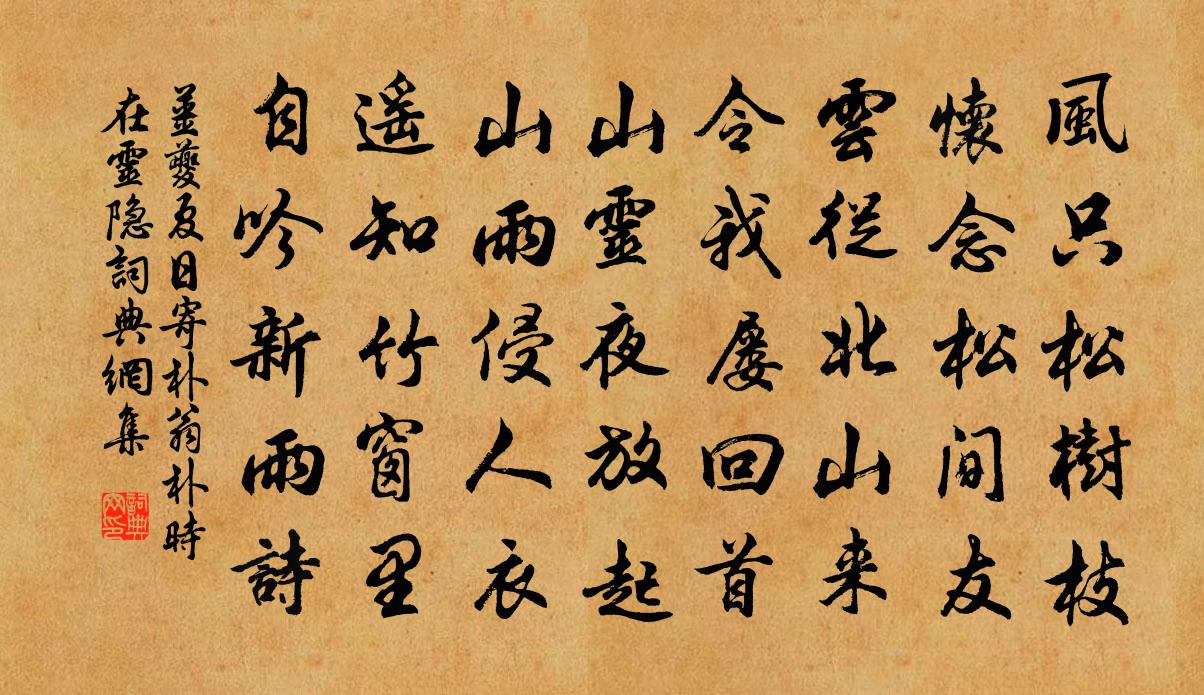 風只松樹枝
懷念松間友
雲從北山来
令我屡回首
山靈夜放起
山雨侵人衣
遥知竹窗里
自吟新雨詩
薑夔夏日寄朴翁朴時
在靈隐詞典網集
詞典网印